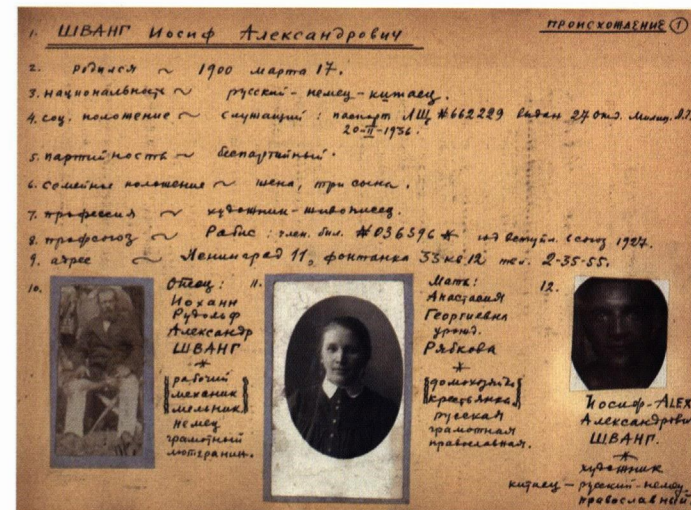 ПРОИСХОЖДЕНИЕ ①
1. ШВАНГ Иосиф Александрович
2. родился ~ 1900 марта 17.
3. национальность ~ русский - немец - китаец.
4. соц. положение ~ служащий: паспорт ЛЩ №662229 выдан 27 отд. Милиц.
20-II-1936.
5. партийность ~ беспартийный.
6. семейное положение ~ жена, три сына.
7. профессия ~ художник-живописец.
8. профсоюз ~ Рабис: член. бил. №036396 * год вступл. в союз 1927.
9. адрес ~ Ленинград 11, фонтанка 33 кв 12 тел. 2-35-55.
10.
Отец:
Иоханн
Рудольф
Александр
ШВАНГ
*
[рабочий
механик
мельник]
немец
грамотный
лютеранин.
11.
Мать:
Анастасия
Георгиевна
урожд.
Рябкова
*
[домохозяйка
крестьянка]
русская
грамотная
православная.
12.
Иосиф-ALEX
Александрович
ШВАНГ.
*
художник
китаец - русский - немец
православный